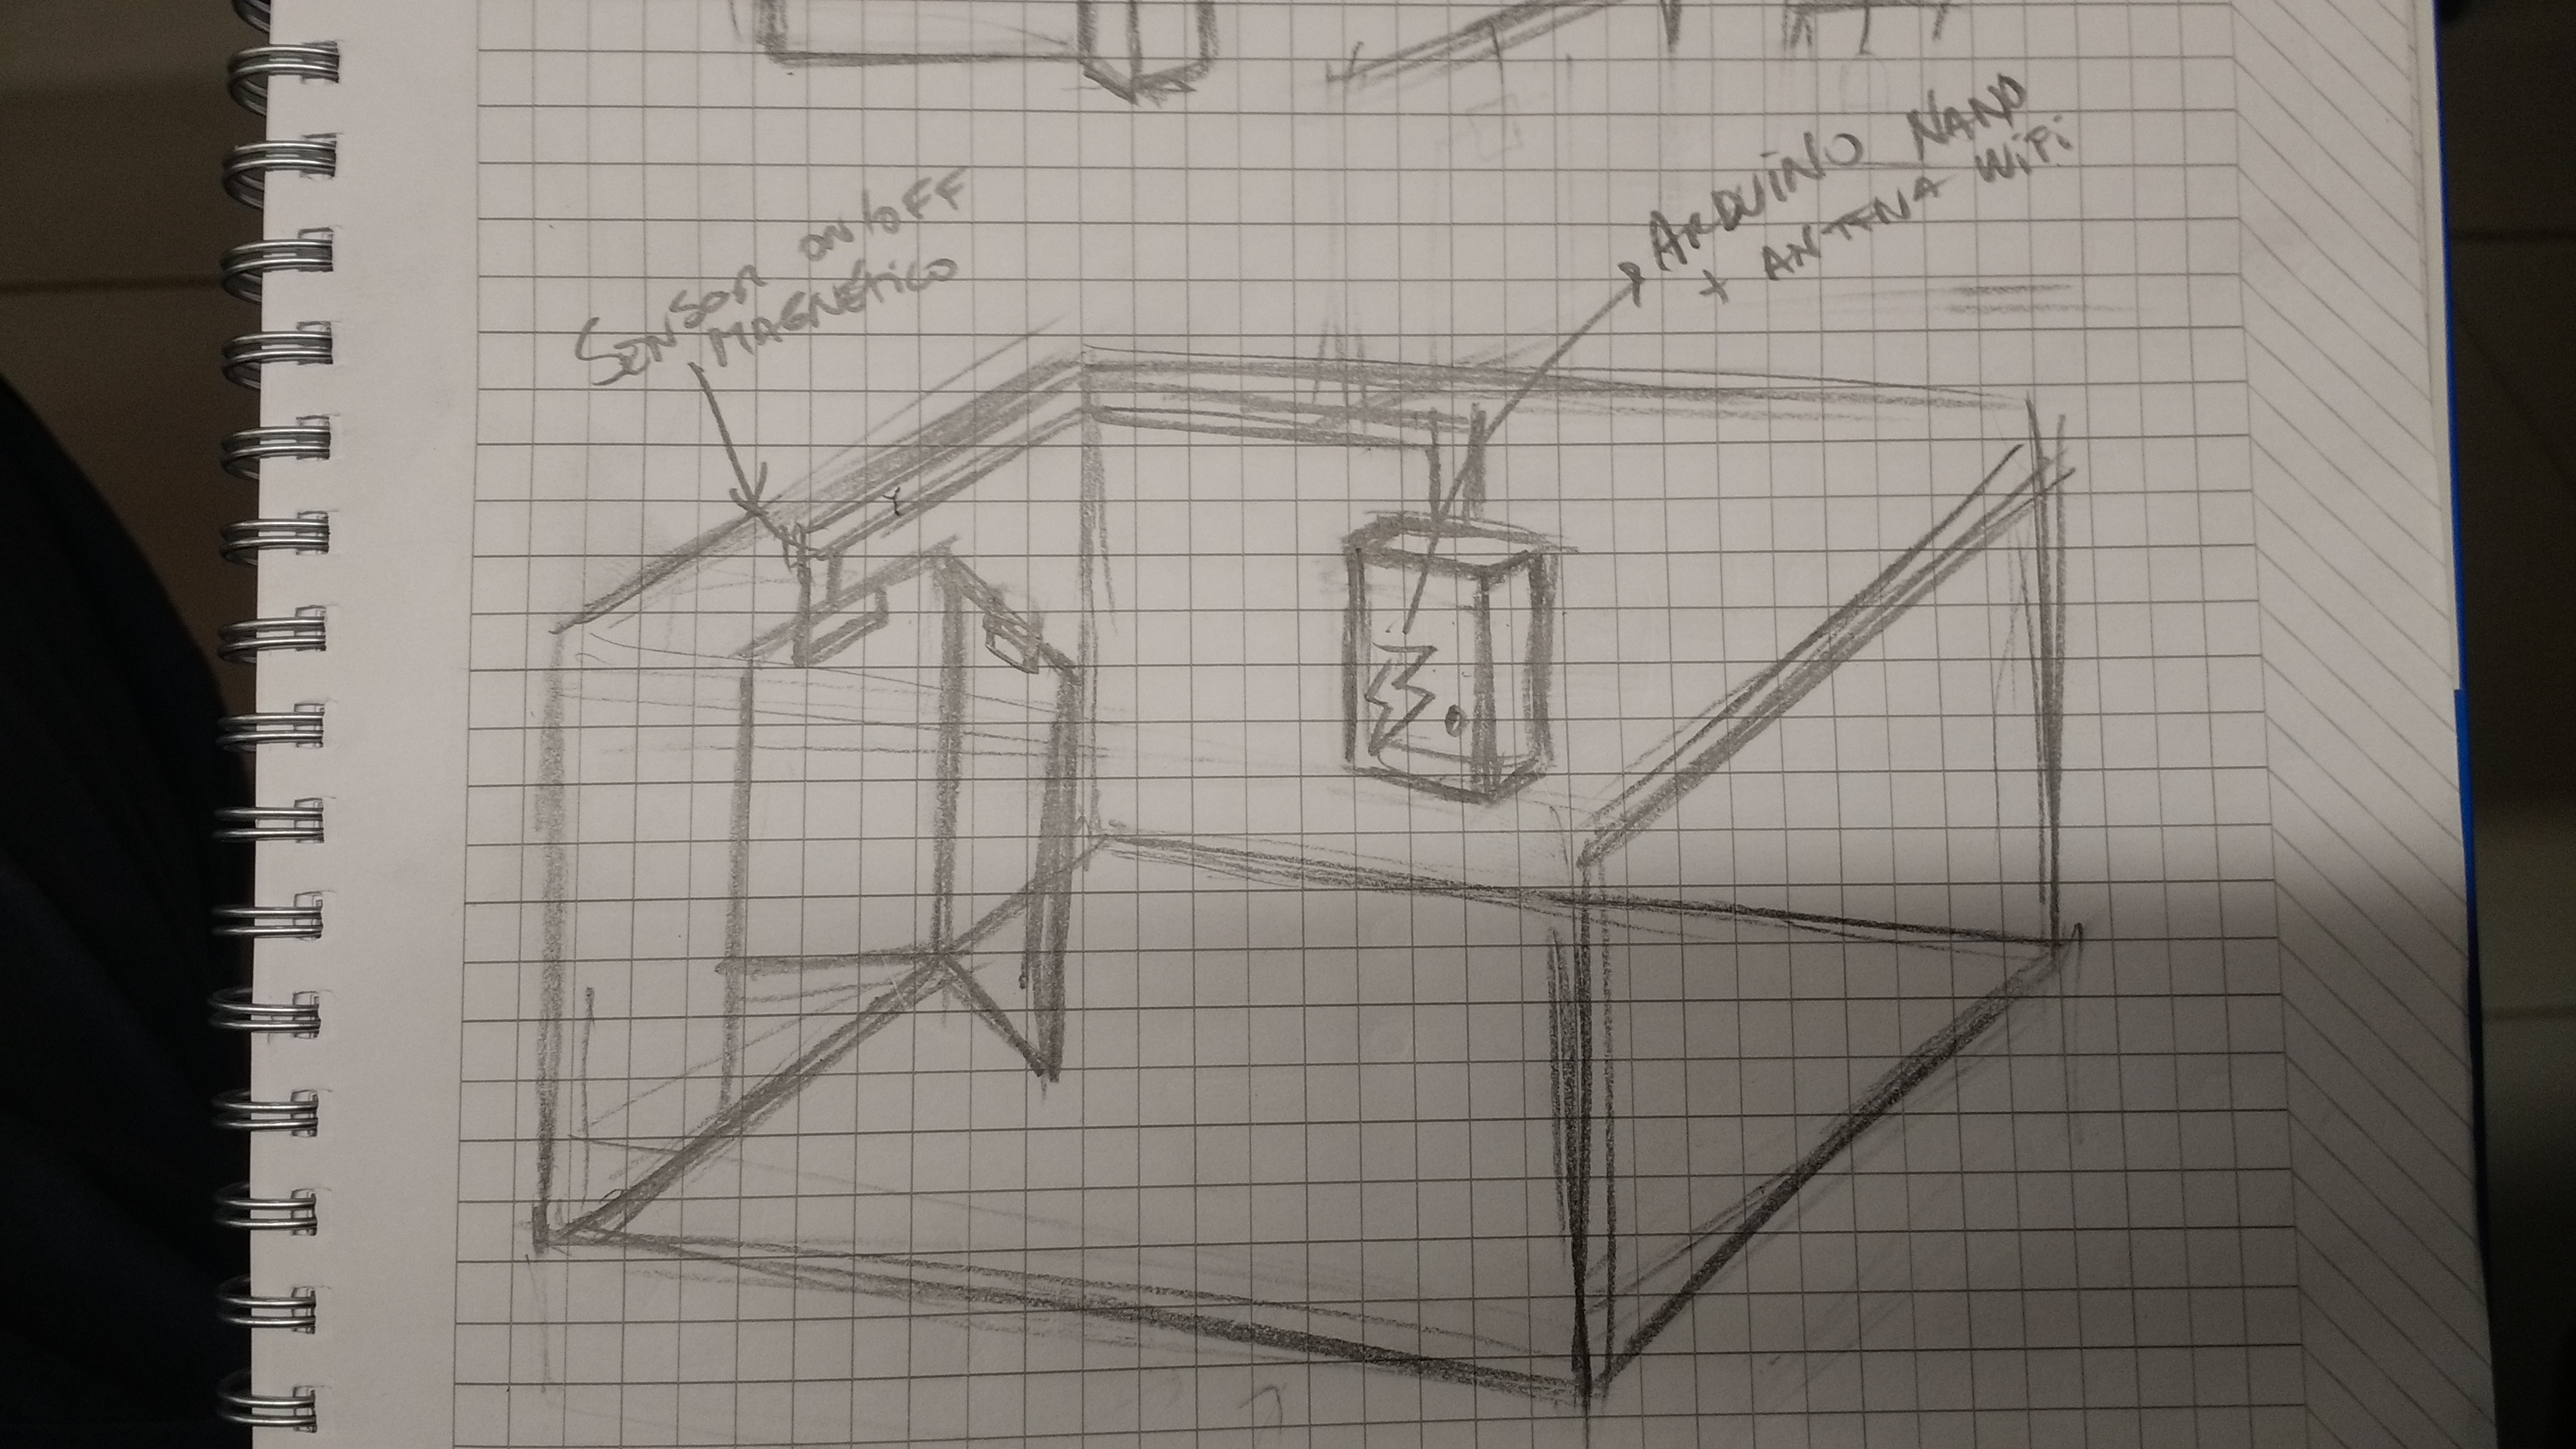 SENSOR ON/OFF
MAGNÉTICO
ARDUINO NANO
+ ANTENA WiFi